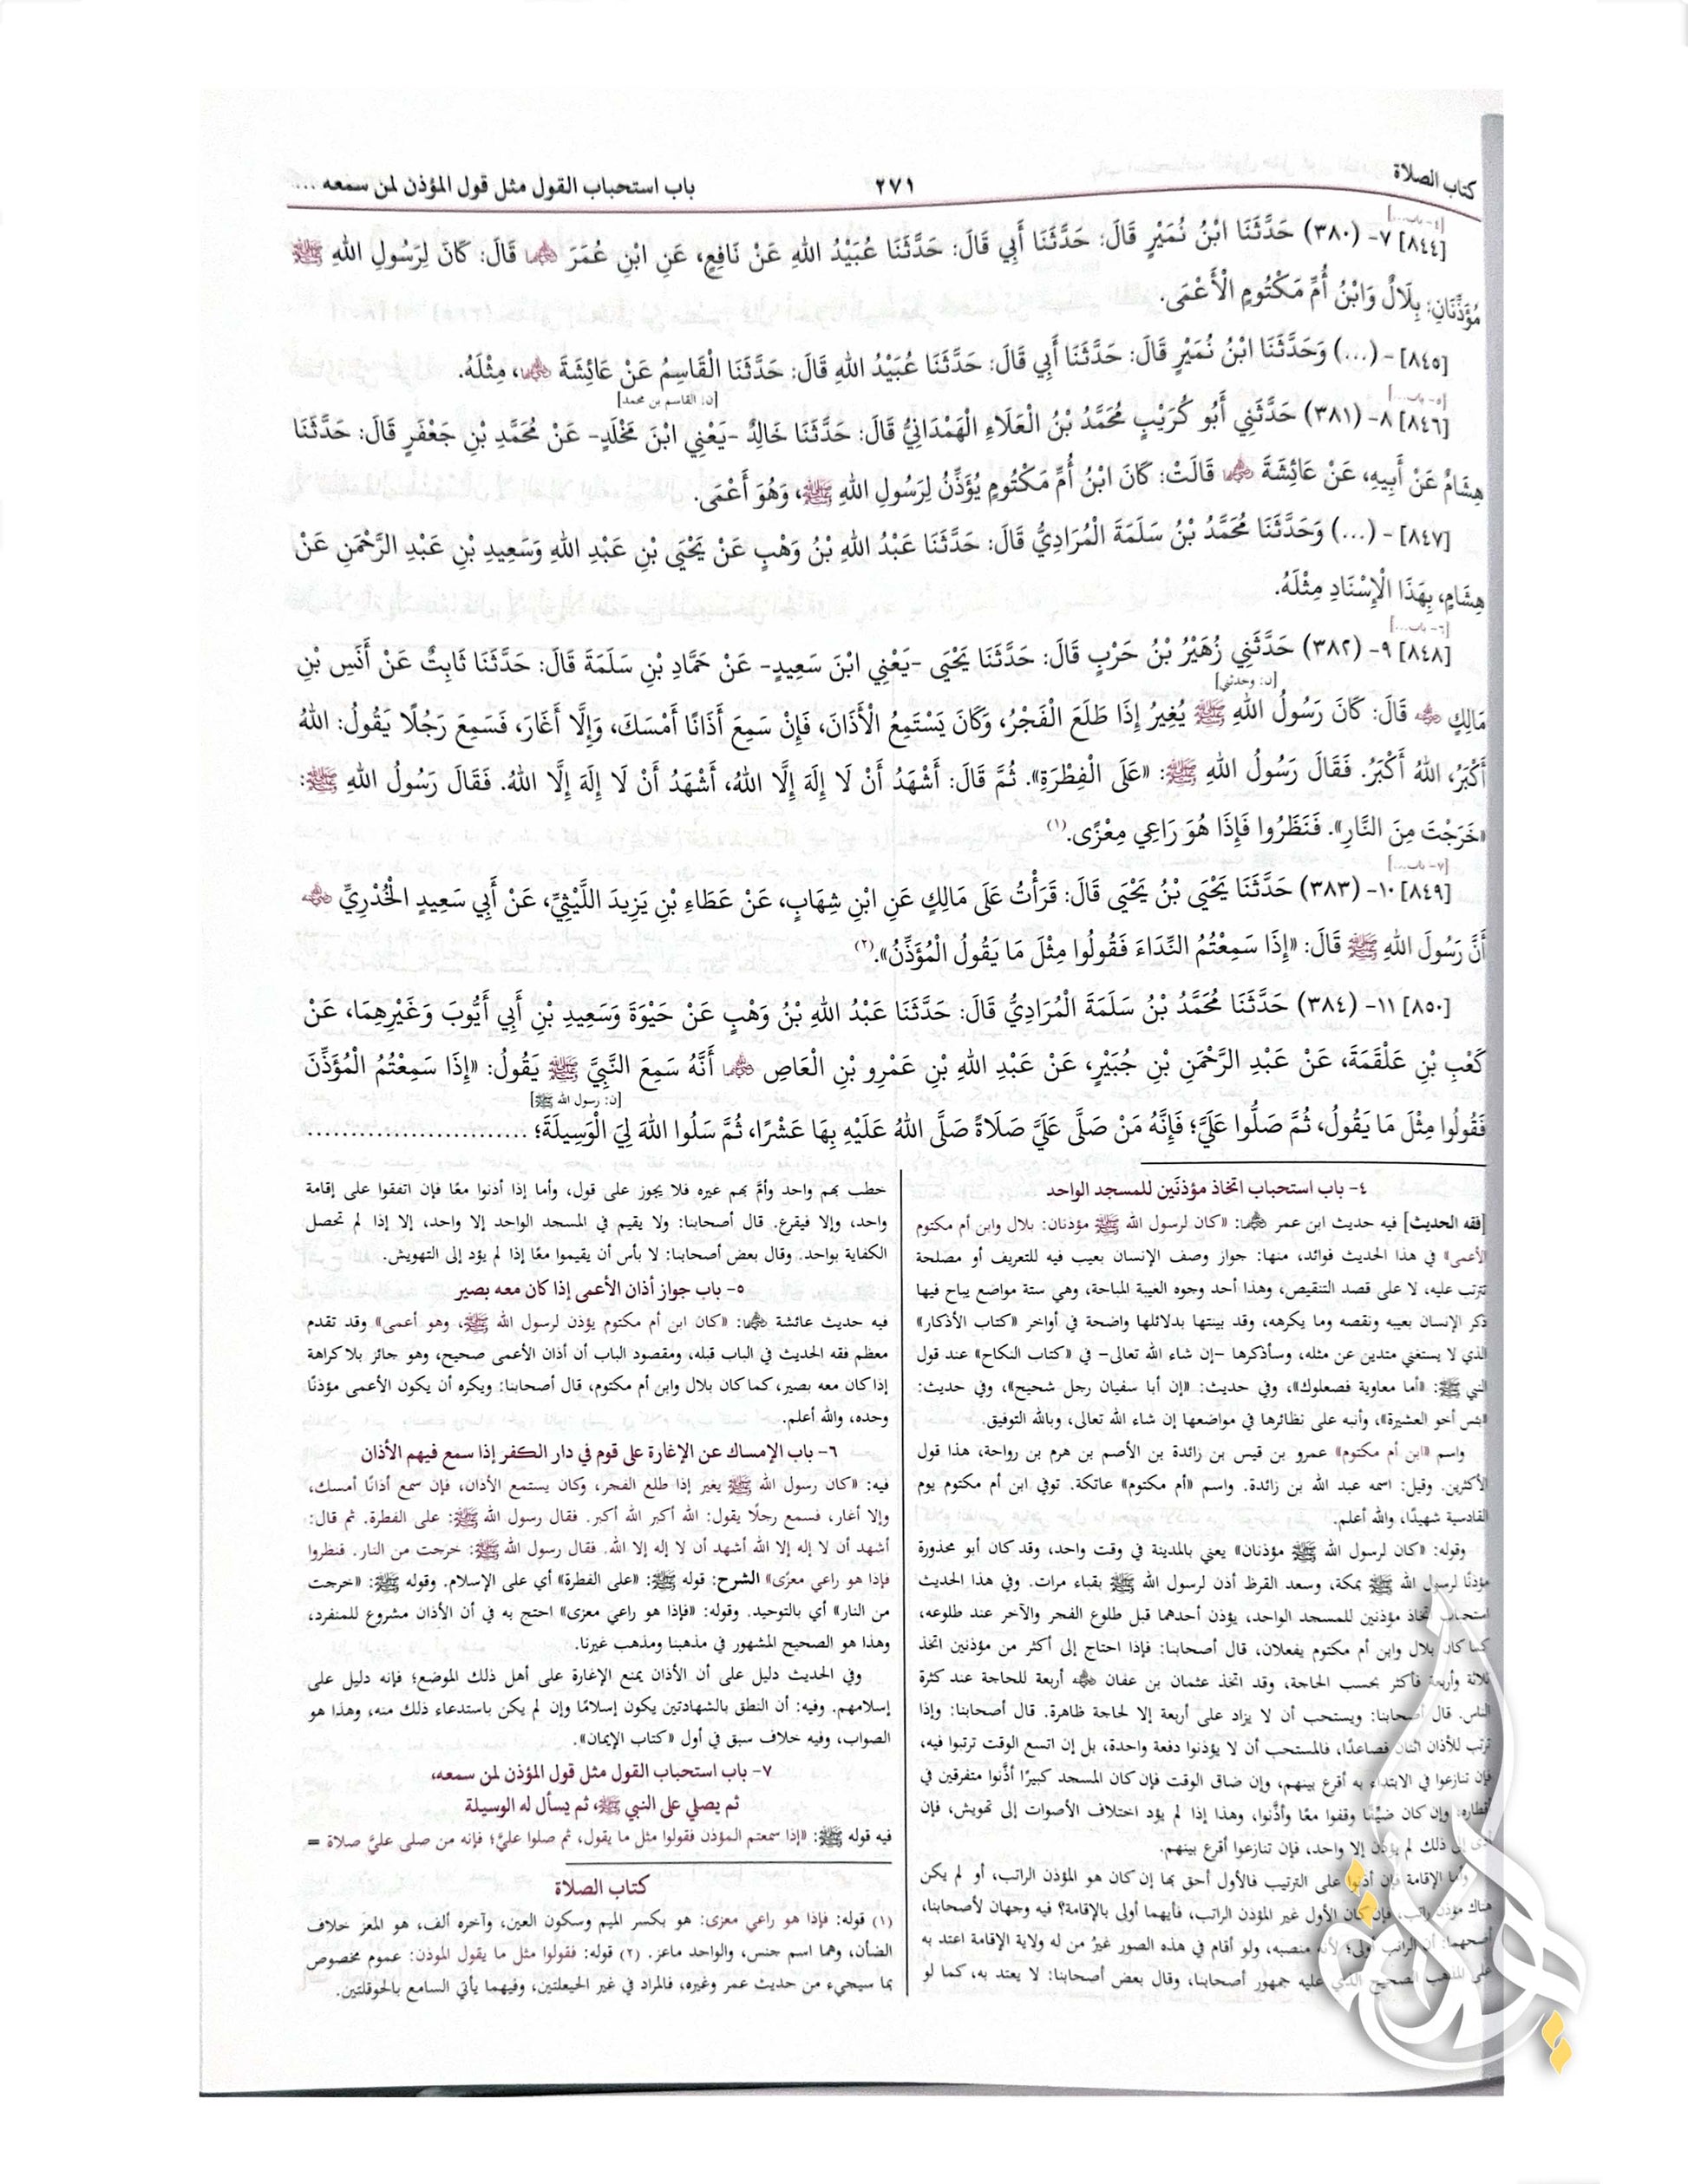 كتاب الصلاة
٢٧١
باب استحباب القول مثل قول المؤذن لمن سمعه ...
[٤- باب...]
[٨٤٤] ٧- (٣٨٠) حَدَّثَنَا ابْنُ نُمَيْرٍ قَالَ: حَدَّثَنَا أَبِي قَالَ: حَدَّثَنَا عُبَيْدُ اللهِ عَنْ نَافِعٍ، عَنِ ابْنِ عُمَرَ ﵄ قَالَ: كَانَ لِرَسُولِ اللهِ ﷺ
مُؤَذِّنَانِ: بِلَالٌ وَابْنُ أُمِّ مَكْتُومٍ الْأَعْمَى.
[٨٤٥] - (...) وَحَدَّثَنَا ابْنُ نُمَيْرٍ قَالَ: حَدَّثَنَا أَبِي قَالَ: حَدَّثَنَا عُبَيْدُ اللهِ قَالَ: حَدَّثَنَا الْقَاسِمُ عَنْ عَائِشَةَ ﵂، مِثْلَهُ.
[ن: القاسم بن محمد]
[٥- باب...]
[٨٤٦] ٨- (٣٨١) حَدَّثَنِي أَبُو كُرَيْبٍ مُحَمَّدُ بْنُ الْعَلَاءِ الْهَمْدَانِيُّ قَالَ: حَدَّثَنَا خَالِدٌ -يَعْنِي ابْنَ مَخْلَدٍ- عَنْ مُحَمَّدِ بْنِ جَعْفَرٍ قَالَ: حَدَّثَنَا
هِشَامٌ عَنْ أَبِيهِ، عَنْ عَائِشَةَ ﵂ قَالَتْ: كَانَ ابْنُ أُمِّ مَكْتُومٍ يُؤَذِّنُ لِرَسُولِ اللهِ ﷺ، وَهُوَ أَعْمَى.
[٨٤٧] - (...) وَحَدَّثَنَا مُحَمَّدُ بْنُ سَلَمَةَ الْمُرَادِيُّ قَالَ: حَدَّثَنَا عَبْدُ اللهِ بْنُ وَهْبٍ عَنْ يَحْيَى بْنِ عَبْدِ اللهِ وَسَعِيدِ بْنِ عَبْدِ الرَّحْمَنِ عَنْ
هِشَامٍ، بِهَذَا الْإِسْنَادِ مِثْلَهُ.
[٦- باب...]
[٨٤٨] ٩- (٣٨٢) حَدَّثَنِي زُهَيْرُ بْنُ حَرْبٍ قَالَ: حَدَّثَنَا يَحْيَى -يَعْنِي ابْنَ سَعِيدٍ- عَنْ حَمَّادِ بْنِ سَلَمَةَ قَالَ: حَدَّثَنَا ثَابِتٌ عَنْ أَنَسِ بْنِ
[ن: وحدثني]
مَالِكٍ ﵁ قَالَ: كَانَ رَسُولُ اللهِ ﷺ يُغِيرُ إِذَا طَلَعَ الْفَجْرُ، وَكَانَ يَسْتَمِعُ الْأَذَانَ، فَإِنْ سَمِعَ أَذَانًا أَمْسَكَ، وَإِلَّا أَغَارَ، فَسَمِعَ رَجُلًا يَقُولُ: اللهُ
أَكْبَرُ، اللهُ أَكْبَرُ. فَقَالَ رَسُولُ اللهِ ﷺ: «عَلَى الْفِطْرَةِ». ثُمَّ قَالَ: أَشْهَدُ أَنْ لَا إِلَهَ إِلَّا اللهُ، أَشْهَدُ أَنْ لَا إِلَهَ إِلَّا اللهُ. فَقَالَ رَسُولُ اللهِ ﷺ:
«خَرَجْتَ مِنَ النَّارِ». فَنَظَرُوا فَإِذَا هُوَ رَاعِي مِعْزًى.(١)
[٧- باب...]
[٨٤٩] ١٠- (٣٨٣) حَدَّثَنَا يَحْيَى بْنُ يَحْيَى قَالَ: قَرَأْتُ عَلَى مَالِكٍ عَنِ ابْنِ شِهَابٍ، عَنْ عَطَاءِ بْنِ يَزِيدَ اللَّيْثِيِّ، عَنْ أَبِي سَعِيدٍ الْخُدْرِيِّ ﵁
أَنَّ رَسُولَ اللهِ ﷺ قَالَ: «إِذَا سَمِعْتُمُ النِّدَاءَ فَقُولُوا مِثْلَ مَا يَقُولُ الْمُؤَذِّنُ».(٢)
[٨٥٠] ١١- (٣٨٤) حَدَّثَنَا مُحَمَّدُ بْنُ سَلَمَةَ الْمُرَادِيُّ قَالَ: حَدَّثَنَا عَبْدُ اللهِ بْنُ وَهْبٍ عَنْ حَيْوَةَ وَسَعِيدِ بْنِ أَبِي أَيُّوبَ وَغَيْرِهِمَا، عَنْ
كَعْبِ بْنِ عَلْقَمَةَ، عَنْ عَبْدِ الرَّحْمَنِ بْنِ جُبَيْرٍ، عَنْ عَبْدِ اللهِ بْنِ عَمْرِو بْنِ الْعَاصِ ﵄ أَنَّهُ سَمِعَ النَّبِيَّ ﷺ يَقُولُ: «إِذَا سَمِعْتُمُ الْمُؤَذِّنَ
[ن: رسول الله ﷺ]
فَقُولُوا مِثْلَ مَا يَقُولُ، ثُمَّ صَلُّوا عَلَيَّ؛ فَإِنَّهُ مَنْ صَلَّى عَلَيَّ صَلَاةً صَلَّى اللهُ عَلَيْهِ بِهَا عَشْرًا، ثُمَّ سَلُوا اللهَ لِيَ الْوَسِيلَةَ؛ ............................
٤- باب استحباب اتخاذ مؤذنَين للمسجد الواحد
[فقه الحديث] فيه حديث ابن عمر ﵄: «كان لرسول الله ﷺ مؤذنان: بلال وابن أم مكتوم
الأعمى» في هذا الحديث فوائد، منها: جواز وصف الإنسان بعيب فيه للتعريف أو مصلحة
تترتب عليه، لا على قصد التنقيص، وهذا أحد وجوه الغيبة المباحة، وهي ستة مواضع يباح فيها
ذكر الإنسان بعيبه ونقصه وما يكرهه، وقد بينتها بدلائلها واضحة في أواخر «كتاب الأذكار»
الذي لا يستغني متدين عن مثله، وسأذكرها -إن شاء الله تعالى- في «كتاب النكاح» عند قول
النبي ﷺ: «أما معاوية فصعلوك»، وفي حديث: «إن أبا سفيان رجل شحيح»، وفي حديث:
«بئس أخو العشيرة»، وأنبه على نظائرها في مواضعها إن شاء الله تعالى، وبالله التوفيق.
واسم «ابن أم مكتوم» عمرو بن قيس بن زائدة بن الأصم بن هرم بن رواحة، هذا قول
الأكثرين. وقيل: اسمه عبد الله بن زائدة. واسم «أم مكتوم» عاتكة. توفي ابن أم مكتوم يوم
القادسية شهيدًا، والله أعلم.
وقوله: «كان لرسول الله ﷺ مؤذنان» يعني بالمدينة في وقت واحد، وقد كان أبو محذورة
مؤذنًا لرسول الله ﷺ بمكة، وسعد القرظ أذن لرسول الله ﷺ بقباء مرات. وفي هذا الحديث
استحباب اتخاذ مؤذنين للمسجد الواحد، يؤذن أحدهما قبل طلوع الفجر والآخر عند طلوعه،
كما كان بلال وابن أم مكتوم يفعلان، قال أصحابنا: فإذا احتاج إلى أكثر من مؤذنين اتخذ
ثلاثة وأربعة فأكثر بحسب الحاجة، وقد اتخذ عثمان بن عفان ﵁ أربعة للحاجة عند كثرة
الناس. قال أصحابنا: ويستحب أن لا يزاد على أربعة إلا لحاجة ظاهرة. قال أصحابنا: وإذا
ترتب للأذان اثنان فصاعدًا، فالمستحب أن لا يؤذنوا دفعة واحدة، بل إن اتسع الوقت ترتبوا فيه،
فإن تنازعوا في الابتداء به أقرع بينهم، وإن ضاق الوقت فإن كان المسجد كبيرًا أذَّنوا متفرقين في
أقطاره، وإن كان ضيِّقًا وقفوا معًا وأذَّنوا، وهذا إذا لم يؤد اختلاف الأصوات إلى تهويش، فإن
أدى إلى ذلك لم يؤذن إلا واحد، فإن تنازعوا أقرع بينهم.
وأما الإقامة فإن أذنوا على الترتيب فالأول أحق بها إن كان هو المؤذن الراتب، أو لم يكن
هناك مؤذن راتب، فإن كان الأول غير المؤذن الراتب، فأيهما أولى بالإقامة؟ فيه وجهان لأصحابنا،
أصحهما: أن الراتب أولى؛ لأنه منصبه، ولو أقام في هذه الصور غيرُ من له ولاية الإقامة اعتد به
على المذهب الصحيح الذي عليه جمهور أصحابنا، وقال بعض أصحابنا: لا يعتد به، كما لو
خطب بهم واحد وأمَّ بهم غيره فلا يجوز على قول، وأما إذا أذنوا معًا فإن اتفقوا على إقامة
واحد، وإلا فيقرع. قال أصحابنا: ولا يقيم في المسجد الواحد إلا واحد، إلا إذا لم تحصل
الكفاية بواحد. وقال بعض أصحابنا: لا بأس أن يقيموا معًا إذا لم يؤد إلى التهويش.
٥- باب جواز أذان الأعمى إذا كان معه بصير
فيه حديث عائشة ﵂: «كان ابن أم مكتوم يؤذن لرسول الله ﷺ، وهو أعمى» وقد تقدم
معظم فقه الحديث في الباب قبله، ومقصود الباب أن أذان الأعمى صحيح، وهو جائز بلا كراهة
إذا كان معه بصير، كما كان بلال وابن أم مكتوم، قال أصحابنا: ويكره أن يكون الأعمى مؤذنًا
وحده، والله أعلم.
٦- باب الإمساك عن الإغارة على قوم في دار الكفر إذا سمع فيهم الأذان
فيه: «كان رسول الله ﷺ يغير إذا طلع الفجر، وكان يستمع الأذان، فإن سمع أذانًا أمسك،
وإلا أغار، فسمع رجلًا يقول: الله أكبر الله أكبر. فقال رسول الله ﷺ: على الفطرة. ثم قال:
أشهد أن لا إله إلا الله أشهد أن لا إله إلا الله. فقال رسول الله ﷺ: خرجت من النار. فنظروا
فإذا هو راعي معزًى» الشرح: قوله ﷺ: «على الفطرة» أي على الإسلام. وقوله ﷺ: «خرجت
من النار» أي بالتوحيد. وقوله: «فإذا هو راعي معزى» احتج به في أن الأذان مشروع للمنفرد،
وهذا هو الصحيح المشهور في مذهبنا ومذهب غيرنا.
وفي الحديث دليل على أن الأذان يمنع الإغارة على أهل ذلك الموضع؛ فإنه دليل على
إسلامهم. وفيه: أن النطق بالشهادتين يكون إسلامًا وإن لم يكن باستدعاء ذلك منه، وهذا هو
الصواب، وفيه خلاف سبق في أول «كتاب الإيمان».
٧- باب استحباب القول مثل قول المؤذن لمن سمعه،
ثم يصلي على النبي ﷺ، ثم يسأل له الوسيلة
فيه قوله ﷺ: «إذا سمعتم المؤذن فقولوا مثل ما يقول، ثم صلوا عليَّ؛ فإنه من صلى عليَّ صلاة =
كتاب الصلاة
(١) قوله: فإذا هو راعي معزى: هو بكسر الميم وسكون العين، وآخره ألف، هو المعز خلاف
الضأن، وهما اسم جنس، والواحد ماعز. (٢) قوله: فقولوا مثل ما يقول المؤذن: عموم مخصوص
بما سيجيء من حديث عمر وغيره، فالمراد في غير الحيعلتين، وفيهما يأتي السامع بالحوقلتين.